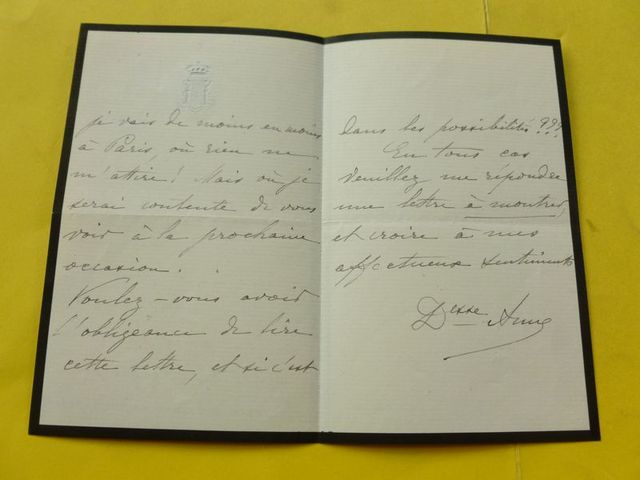 je vais de moins en moins
à Paris, où rien ne
m'attire! Mais où je
serai contente de vous
voir à la prochaine
occasion..
Voulez-vous avoir
l'obligeance de lire
cette lettre, et si c'est
dans les possibilités???
En tous cas
veuillez me répondre
une lettre à montrer,
et croire à mes
affectueux sentiments
Desse Anne